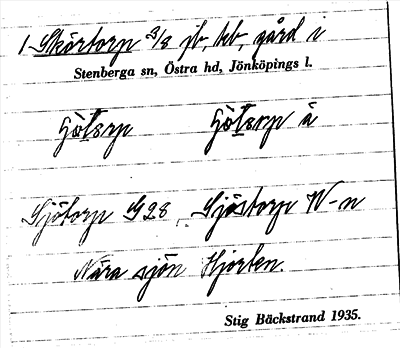 1 Skörtorp 3/8 jb, kb, gård i
Stenberga sn, Östra hd, Jönköpings l.
Sjötorp G28, Sjöstorp W-n
Nära sjön Hjorten.
Stig Bäckstrand 1935.